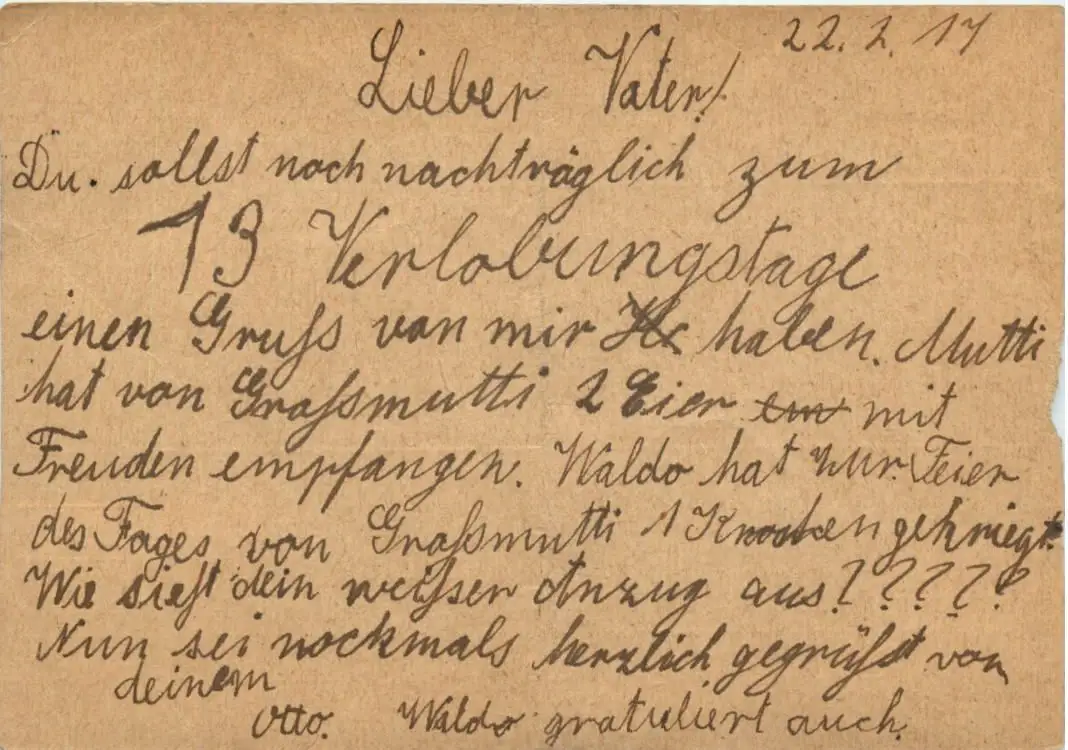 22. 2. 17
Lieber Vater!
Du. sollst noch nachträglich zum
13 Verlobungstage
einen Gruß von mir haben. Mutti
hat von Großmutti 2 Eier mit
Freuden empfangen. Waldo hat zur Feier
des Tages von Großmutti 1 Knochen gekriegt.
Wie sieht dein weißer Anzug aus? ? ? ? ?
Nun sei nochmals herzlich gegrüßt von
deinem
Otto. Waldo gratuliert auch.